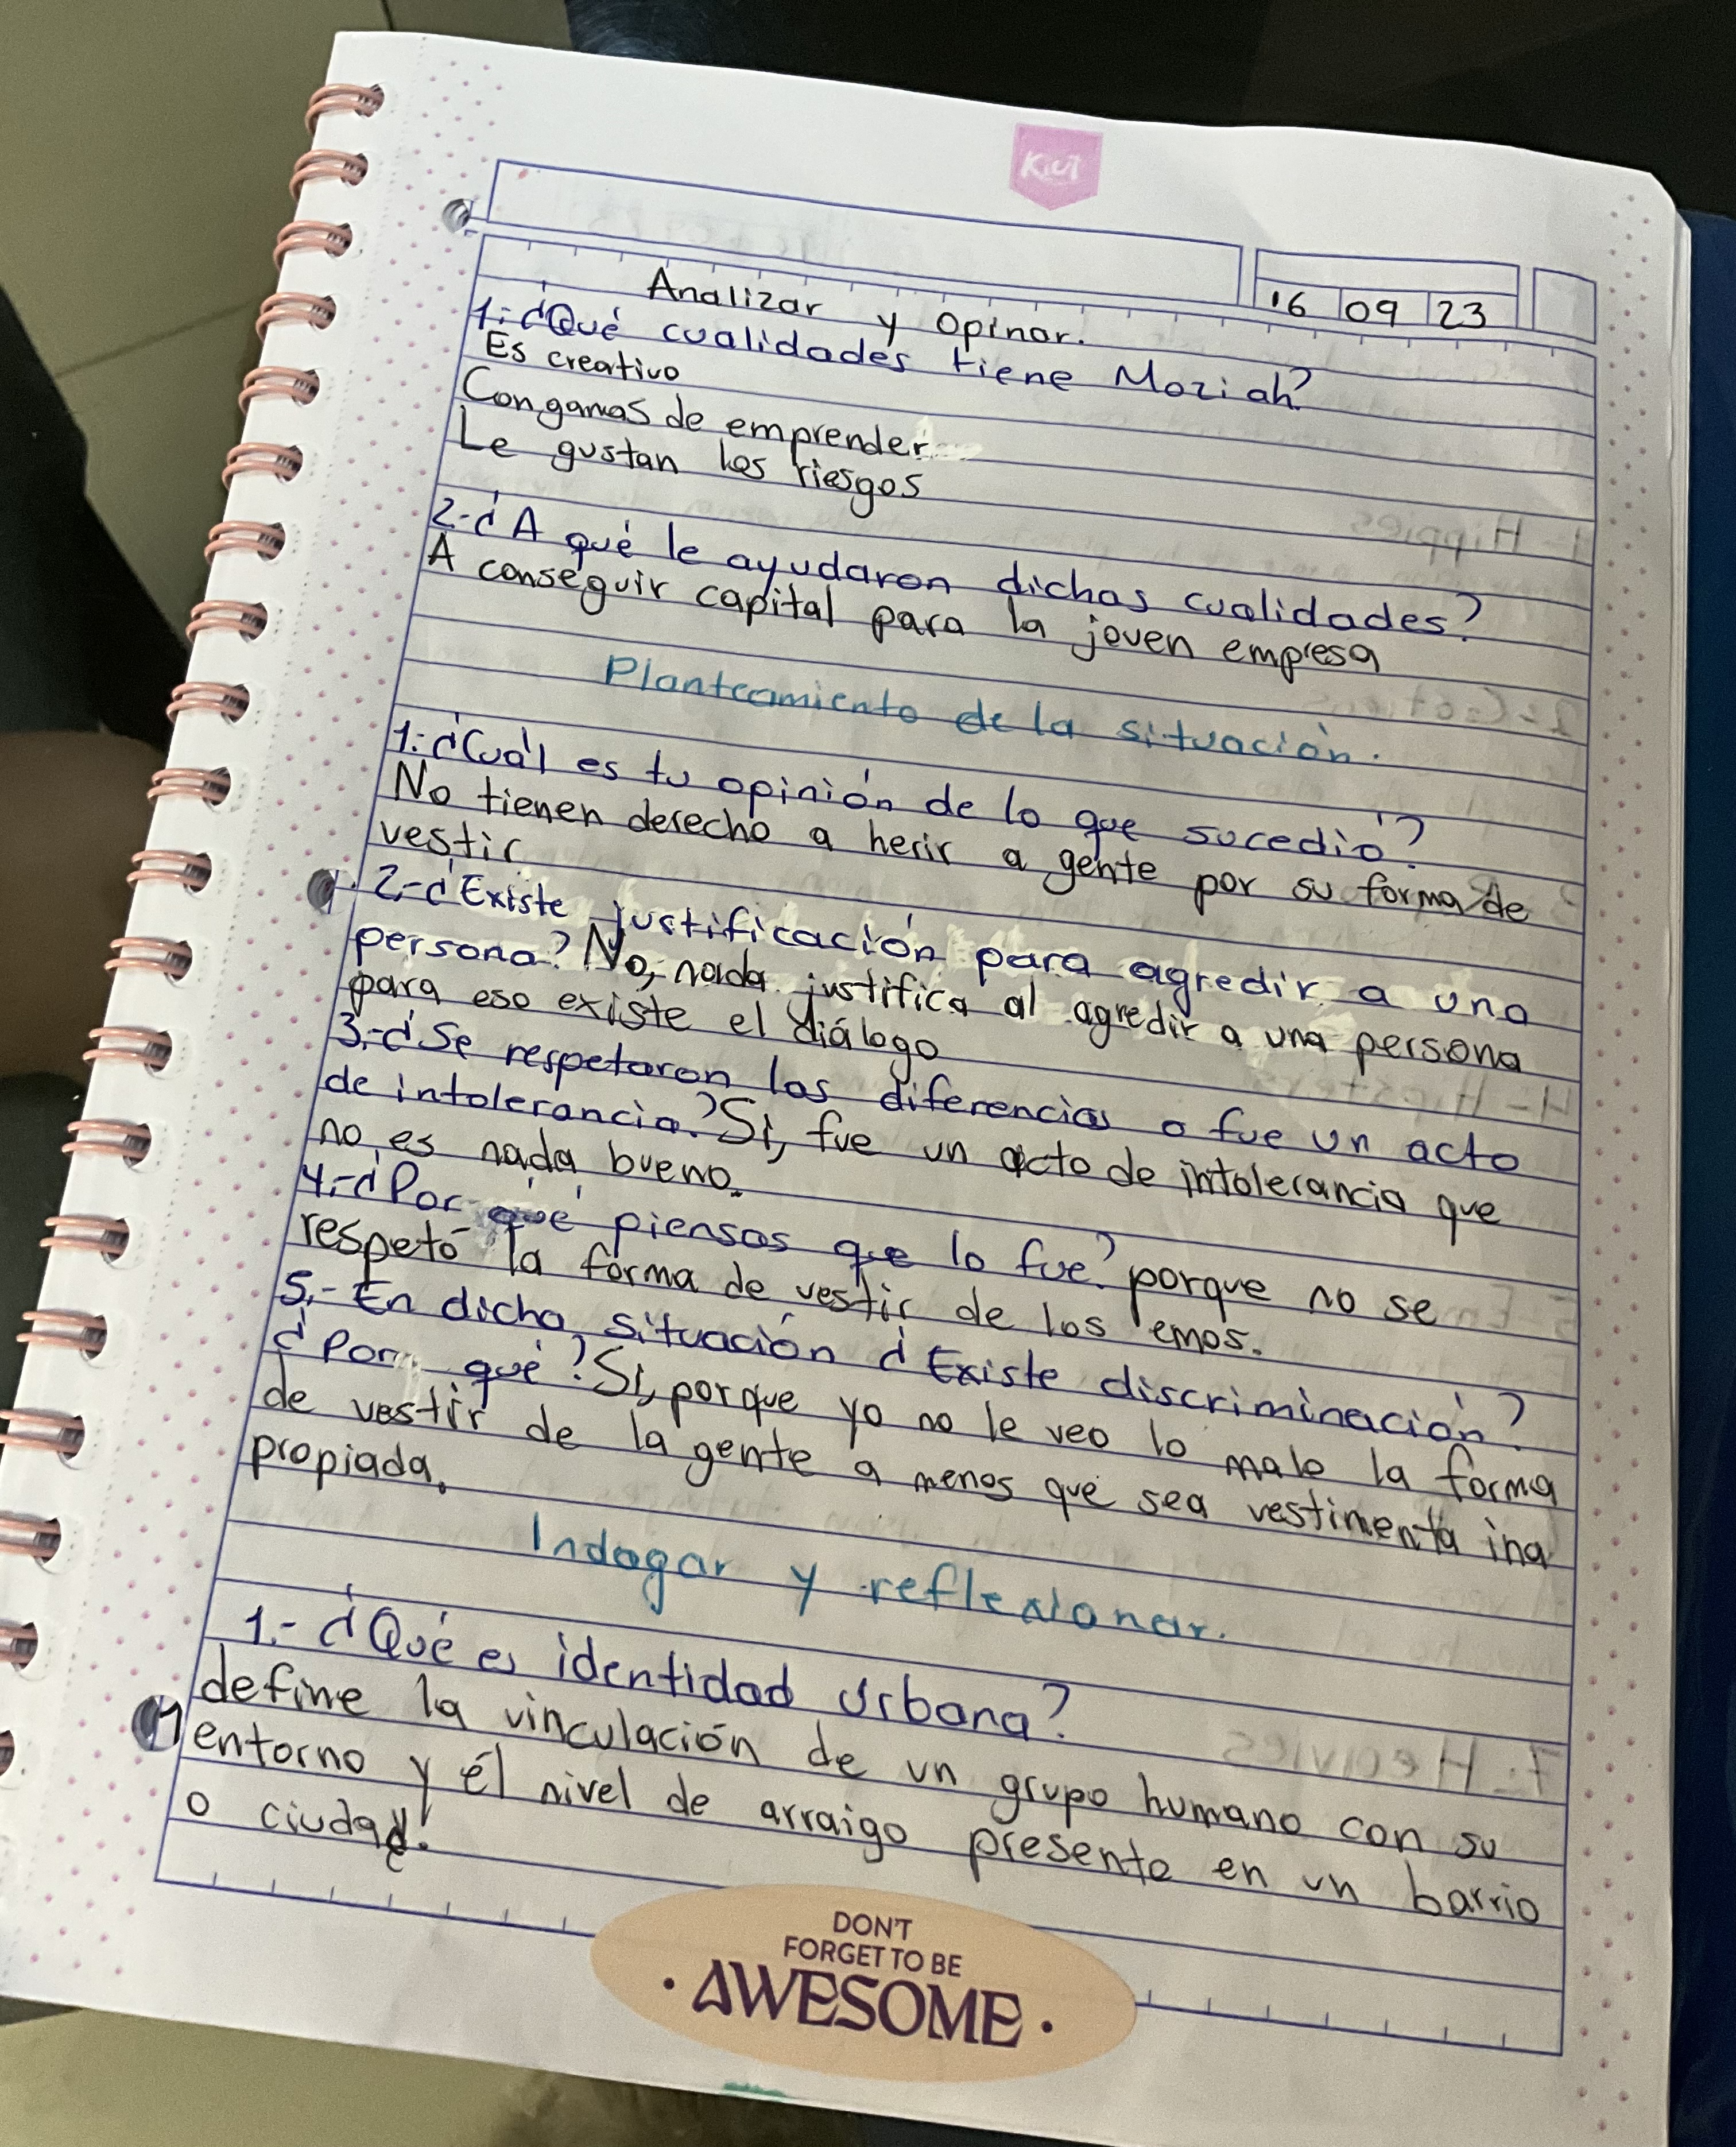 Kiut
16 09 23
Analizar y opinar.
1.-¿Qué cualidades tiene Moziah?
Es creativo
Con ganas de emprender
Le gustan los riesgos
2.-¿A qué le ayudaron dichas cualidades?
A conseguir capital para la joven empresa
Planteamiento de la situación.
1.-¿Cuál es tu opinión de lo que sucedió?
No tienen derecho a herir a gente por su forma de
vestir
2.-¿Existe justificación para agredir a una
persona? No, nada justifica al agredir a una persona
para eso existe el diálogo
3.-¿Se respetaron las diferencias o fue un acto
de intolerancia? Si, fue un acto de intolerancia que
no es nada bueno.
4.-¿Por qué piensas que lo fue? porque no se
respetó la forma de vestir de los emos.
5.- En dicha situación ¿Existe discriminación?
¿Por qué? Si, porque yo no le veo lo malo la forma
de vestir de la gente a menos que sea vestimenta ina
propiada.
Indagar y reflexionar.
1.- ¿Qué es identidad urbana?
define la vinculación de un grupo humano con su
entorno y él nivel de arraigo presente en un barrio
o ciudad.
DON'T
FORGET TO BE
• AWESOME •